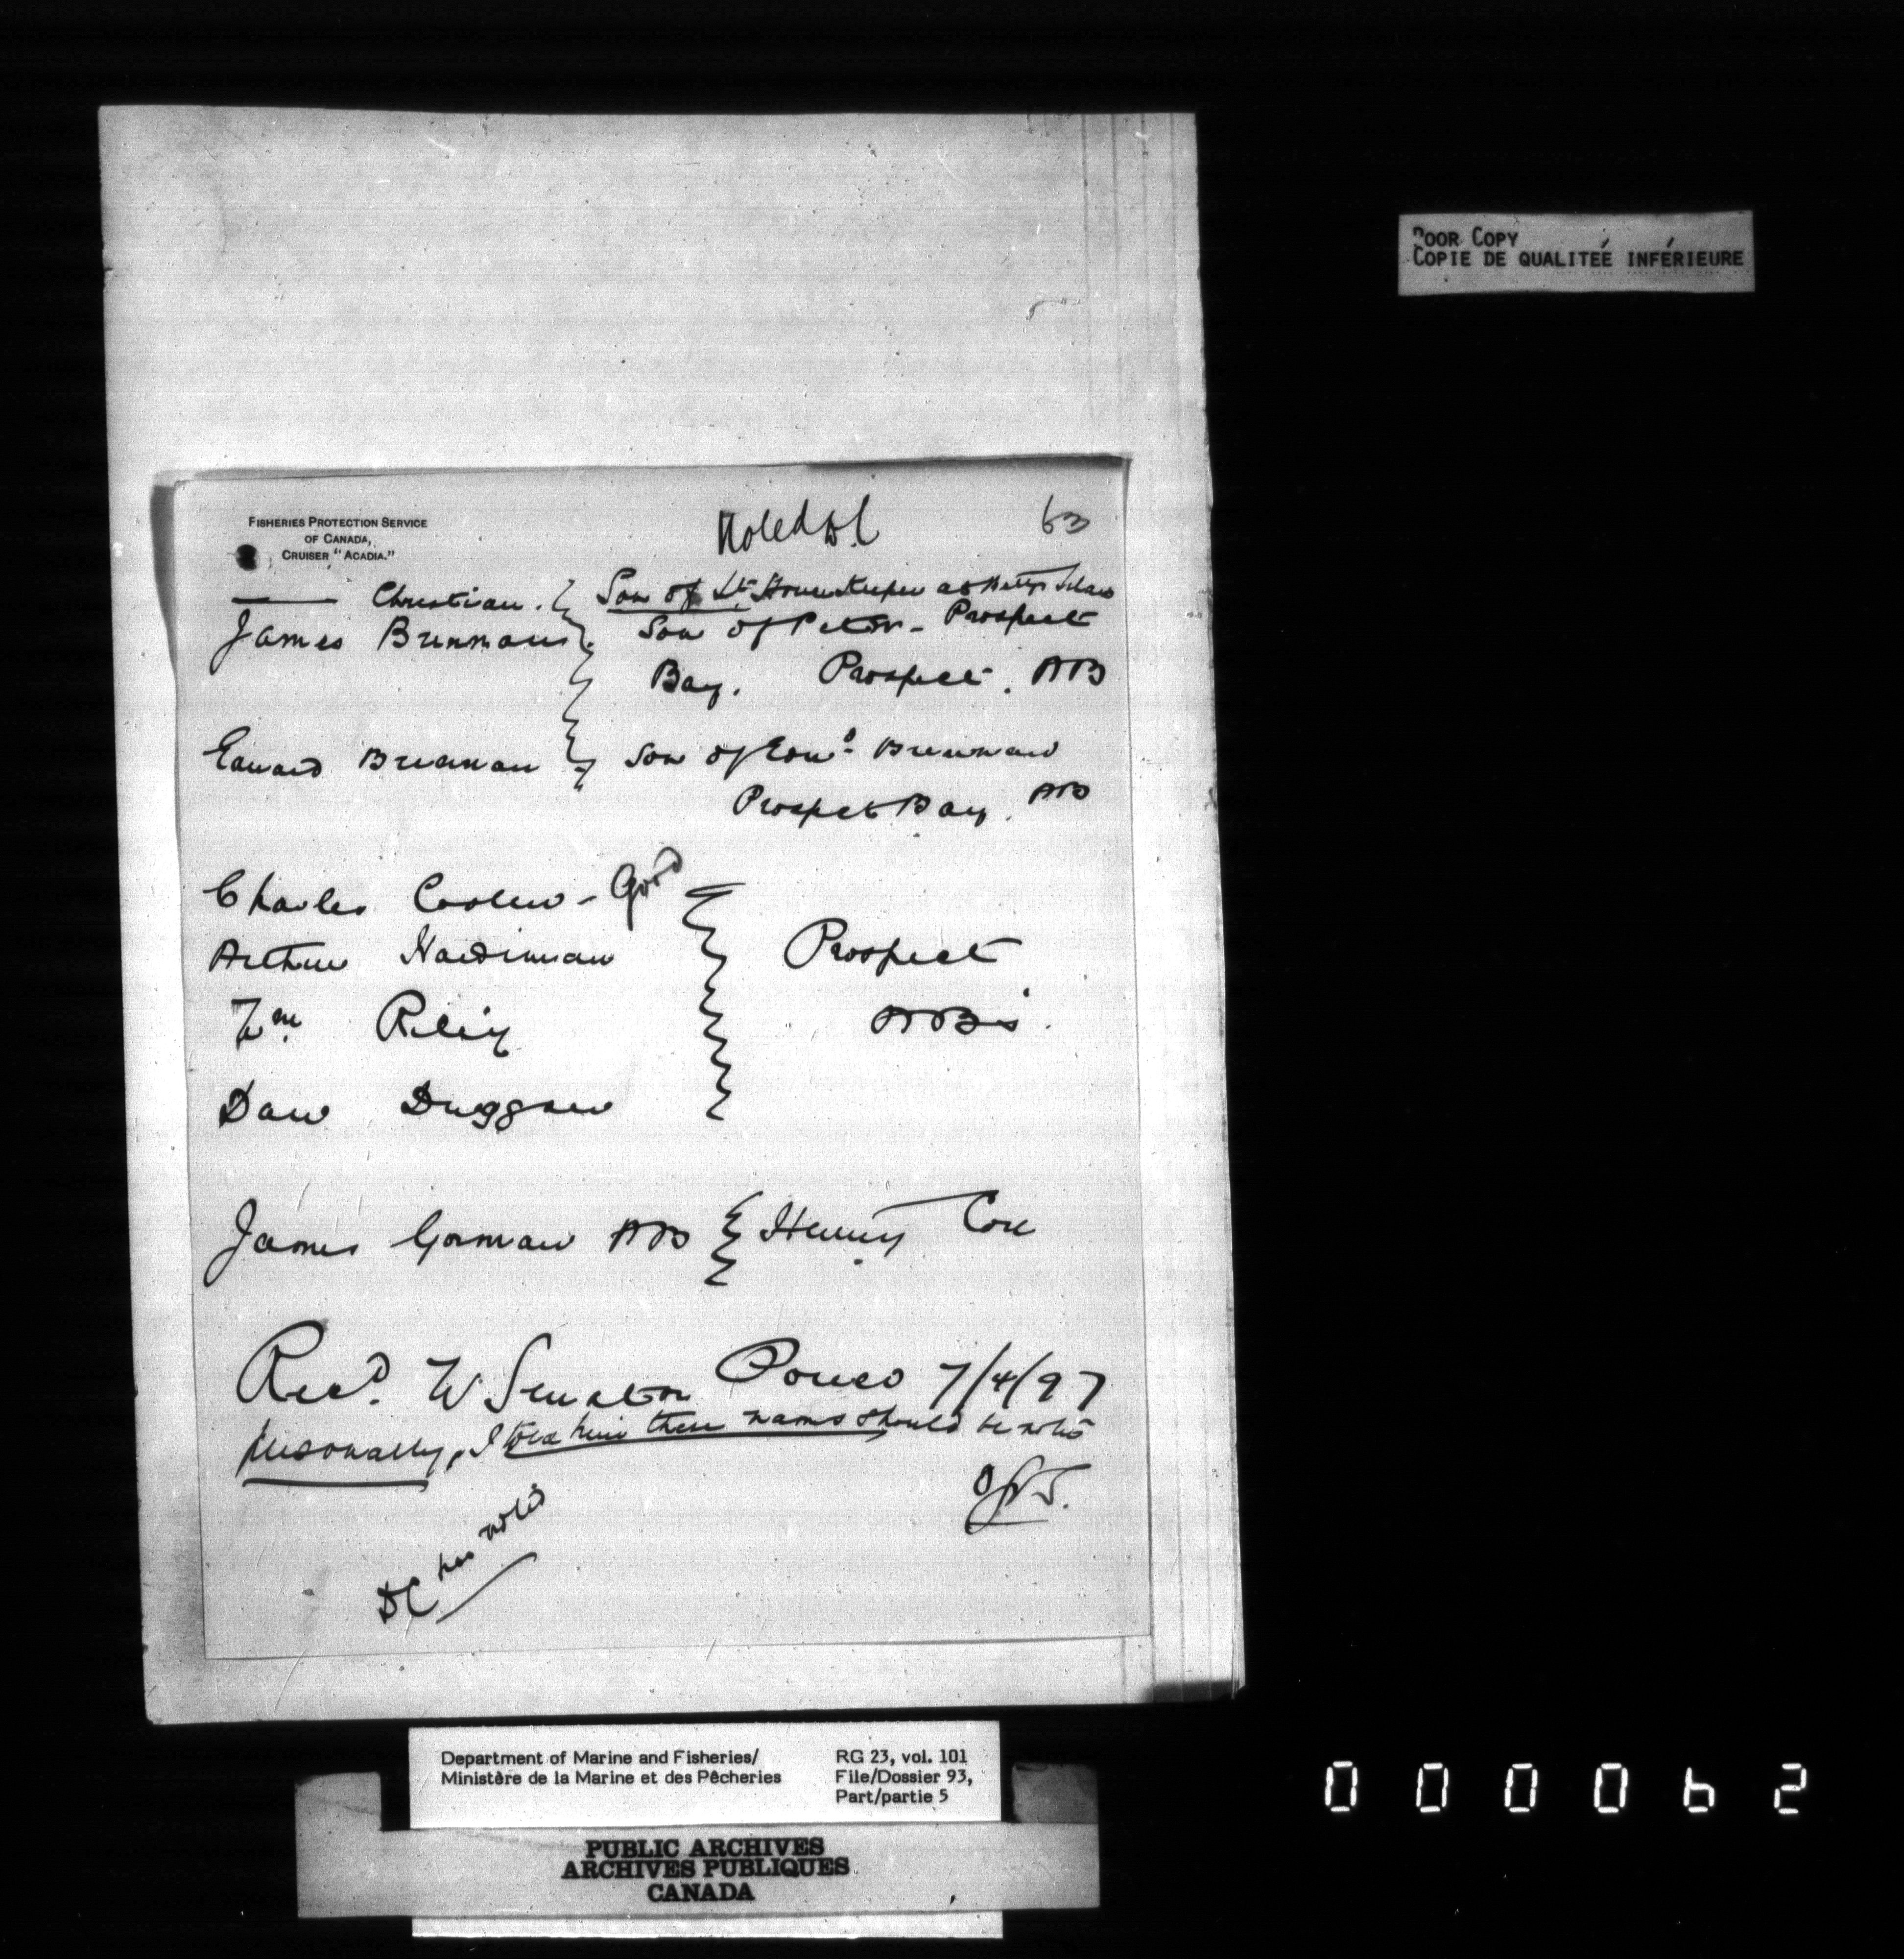 POOR COPY
COPIE DE QUALITEÉ INFÉRIEURE
FISHERIES PROTECTION SERVICE
OF CANADA,
CRUISER "ACADIA."
Noted DC
63
Christian. Son of Lt. House Keeper at Betty Island
James Brennan. Son of Peter - Prospect
Bay. Prospect. AB
Edward Brennan Son of Edwd Brennan
Prospect Bay. AB
Charles Coolen - Good
Arthur Hardiman Prospect
Wm Reily ABs.
Dan Duggan
James Gorman AB Henry Cove
Recd. W Senator Power 7/4/97
personally, I told him these names should be noted
OGVS.
DC has noted
Department of Marine and Fisheries/
Ministère de la Marine et des Pêcheries
RG 23, vol. 101
File/Dossier 93,
Part/partie 5
PUBLIC ARCHIVES
ARCHIVES PUBLIQUES
CANADA
000062